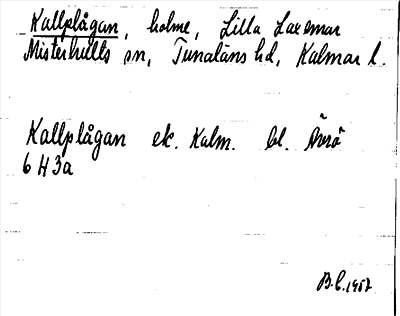 Kallplågan, holme, Lilla Laxemar
Misterhults sn, Tunaläns hd, Kalmar l.
Kallplågan ek. Kalm. bl. Ävrö
6 H 3a
B.L. 1957